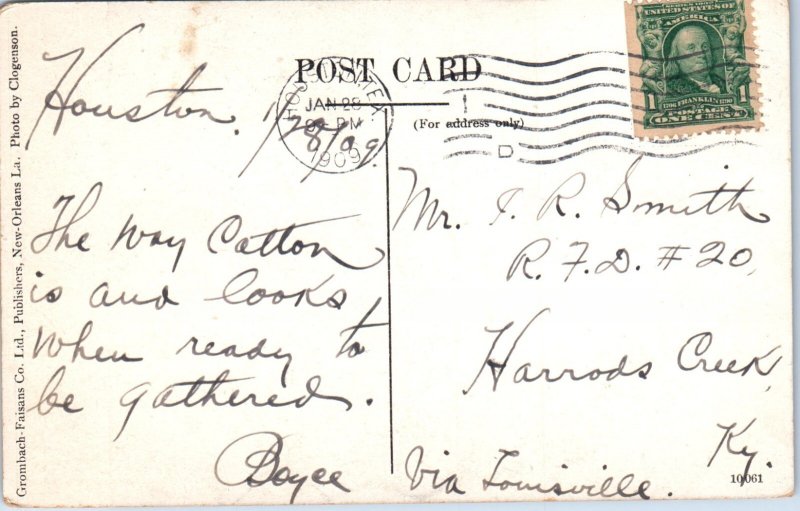 POST CARD
(For address only)
Houston. 1/28/09
HOUSTON, TEX
JAN 28
PM
1909
D
SERIES 1902
UNITED STATES OF
AMERICA
1706 FRANKLIN 1790
1 POSTAGE 1
ONE CENT
The way Cotton
is and looks
when ready to
be gathered.
Boyce
Mr. J. R. Smith
R. F. D. # 20
Harrods Creek,
Ky.
Via Louisville.
10061
Grombach-Faisans Co. Ltd., Publishers, New-Orleans La. Photo by Clogenson.